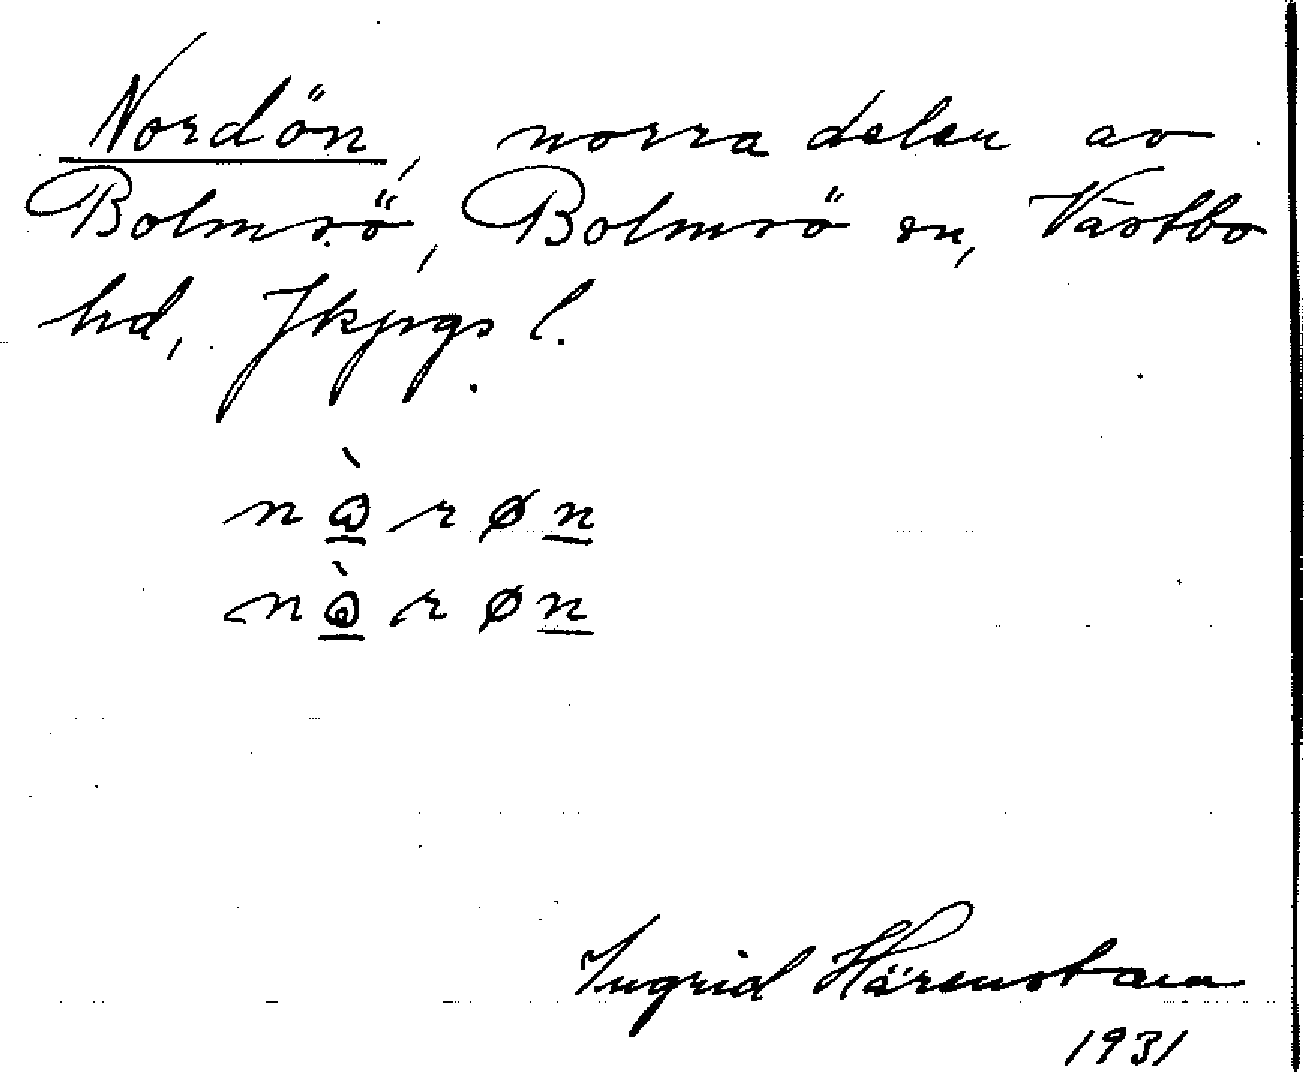 Nordön, norra delen av
Bolmsö, Bolmsö sn, Västbo
hd, Jkpgs l.
Ingrid Härenstam
1931